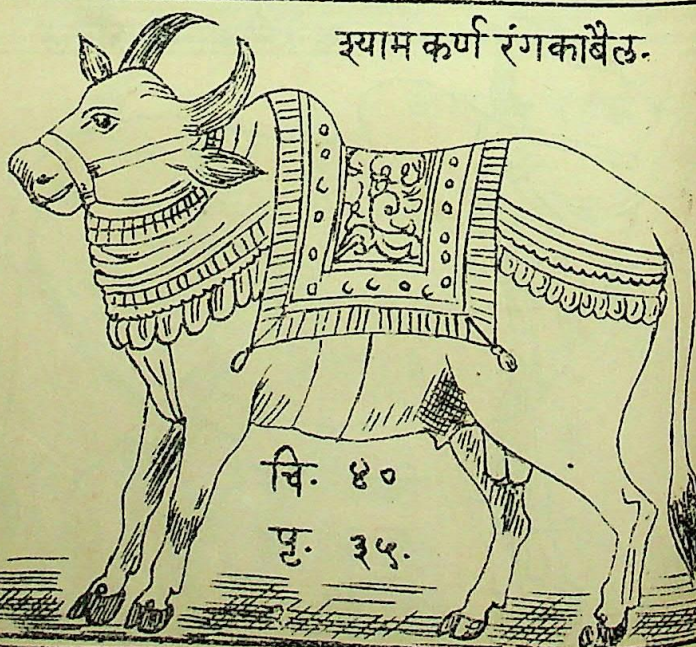 श्याम कर्ण रंगकाबैल.
चि. ४०
पृ. ३५.